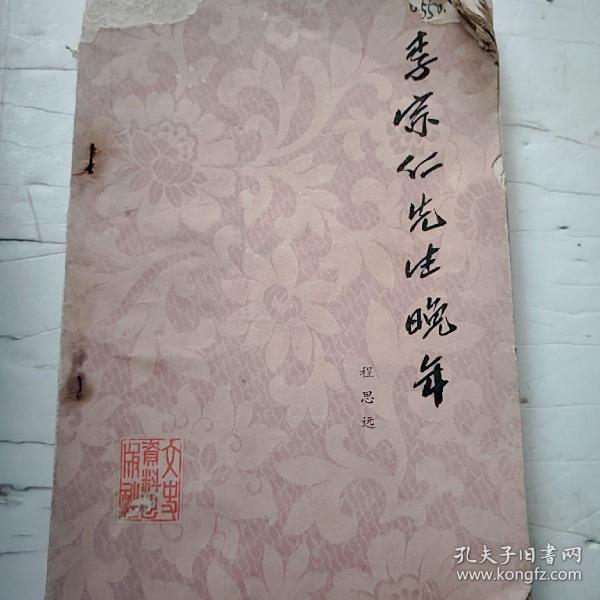 6550.
李宗仁先生晚年
程思远
文史
資料出
版社
孔夫子旧书网
www.kongfz.com